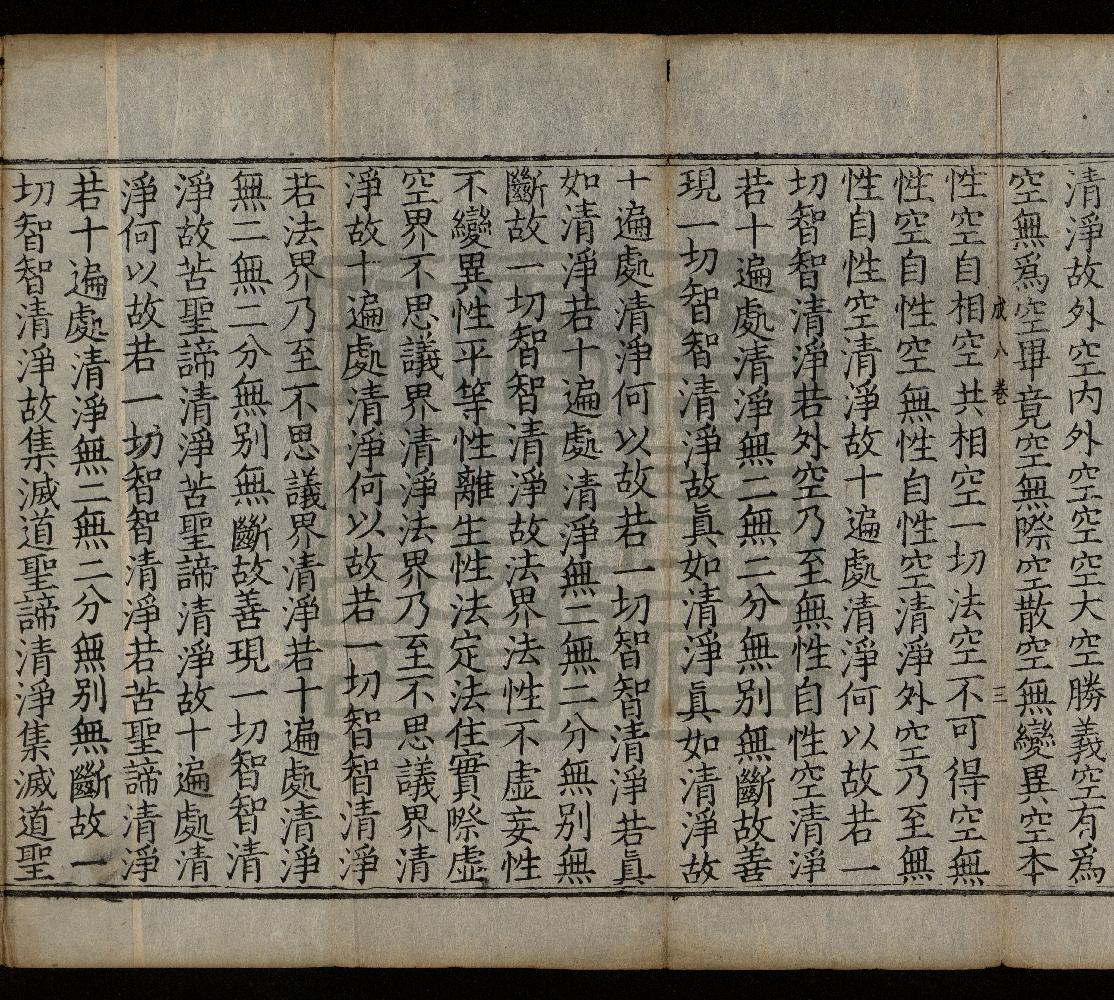 清淨故外空內外空空空大空勝義空有為
空無為空畢竟空無際空散空無變異空本
成八卷 三
性空自相空共相空一切法空不可得空無
性空自性空無性自性空清淨外空乃至無
性自性空清淨故十遍處清淨何以故若一
切智智清淨若外空乃至無性自性空清淨
若十遍處清淨無二無二分無別無斷故善
現一切智智清淨故真如清淨真如清淨故
十遍處清淨何以故若一切智智清淨若真
如清淨若十遍處清淨無二無二分無別無
斷故一切智智清淨故法界法性不虛妄性
不變異性平等性離生性法定法住實際虛
空界不思議界清淨法界乃至不思議界清
淨故十遍處清淨何以故若一切智智清淨
若法界乃至不思議界清淨若十遍處清淨
無二無二分無別無斷故善現一切智智清
淨故苦聖諦清淨苦聖諦清淨故十遍處清
淨何以故若一切智智清淨若苦聖諦清淨
若十遍處清淨無二無二分無別無斷故一
切智智清淨故集滅道聖諦清淨集滅道聖